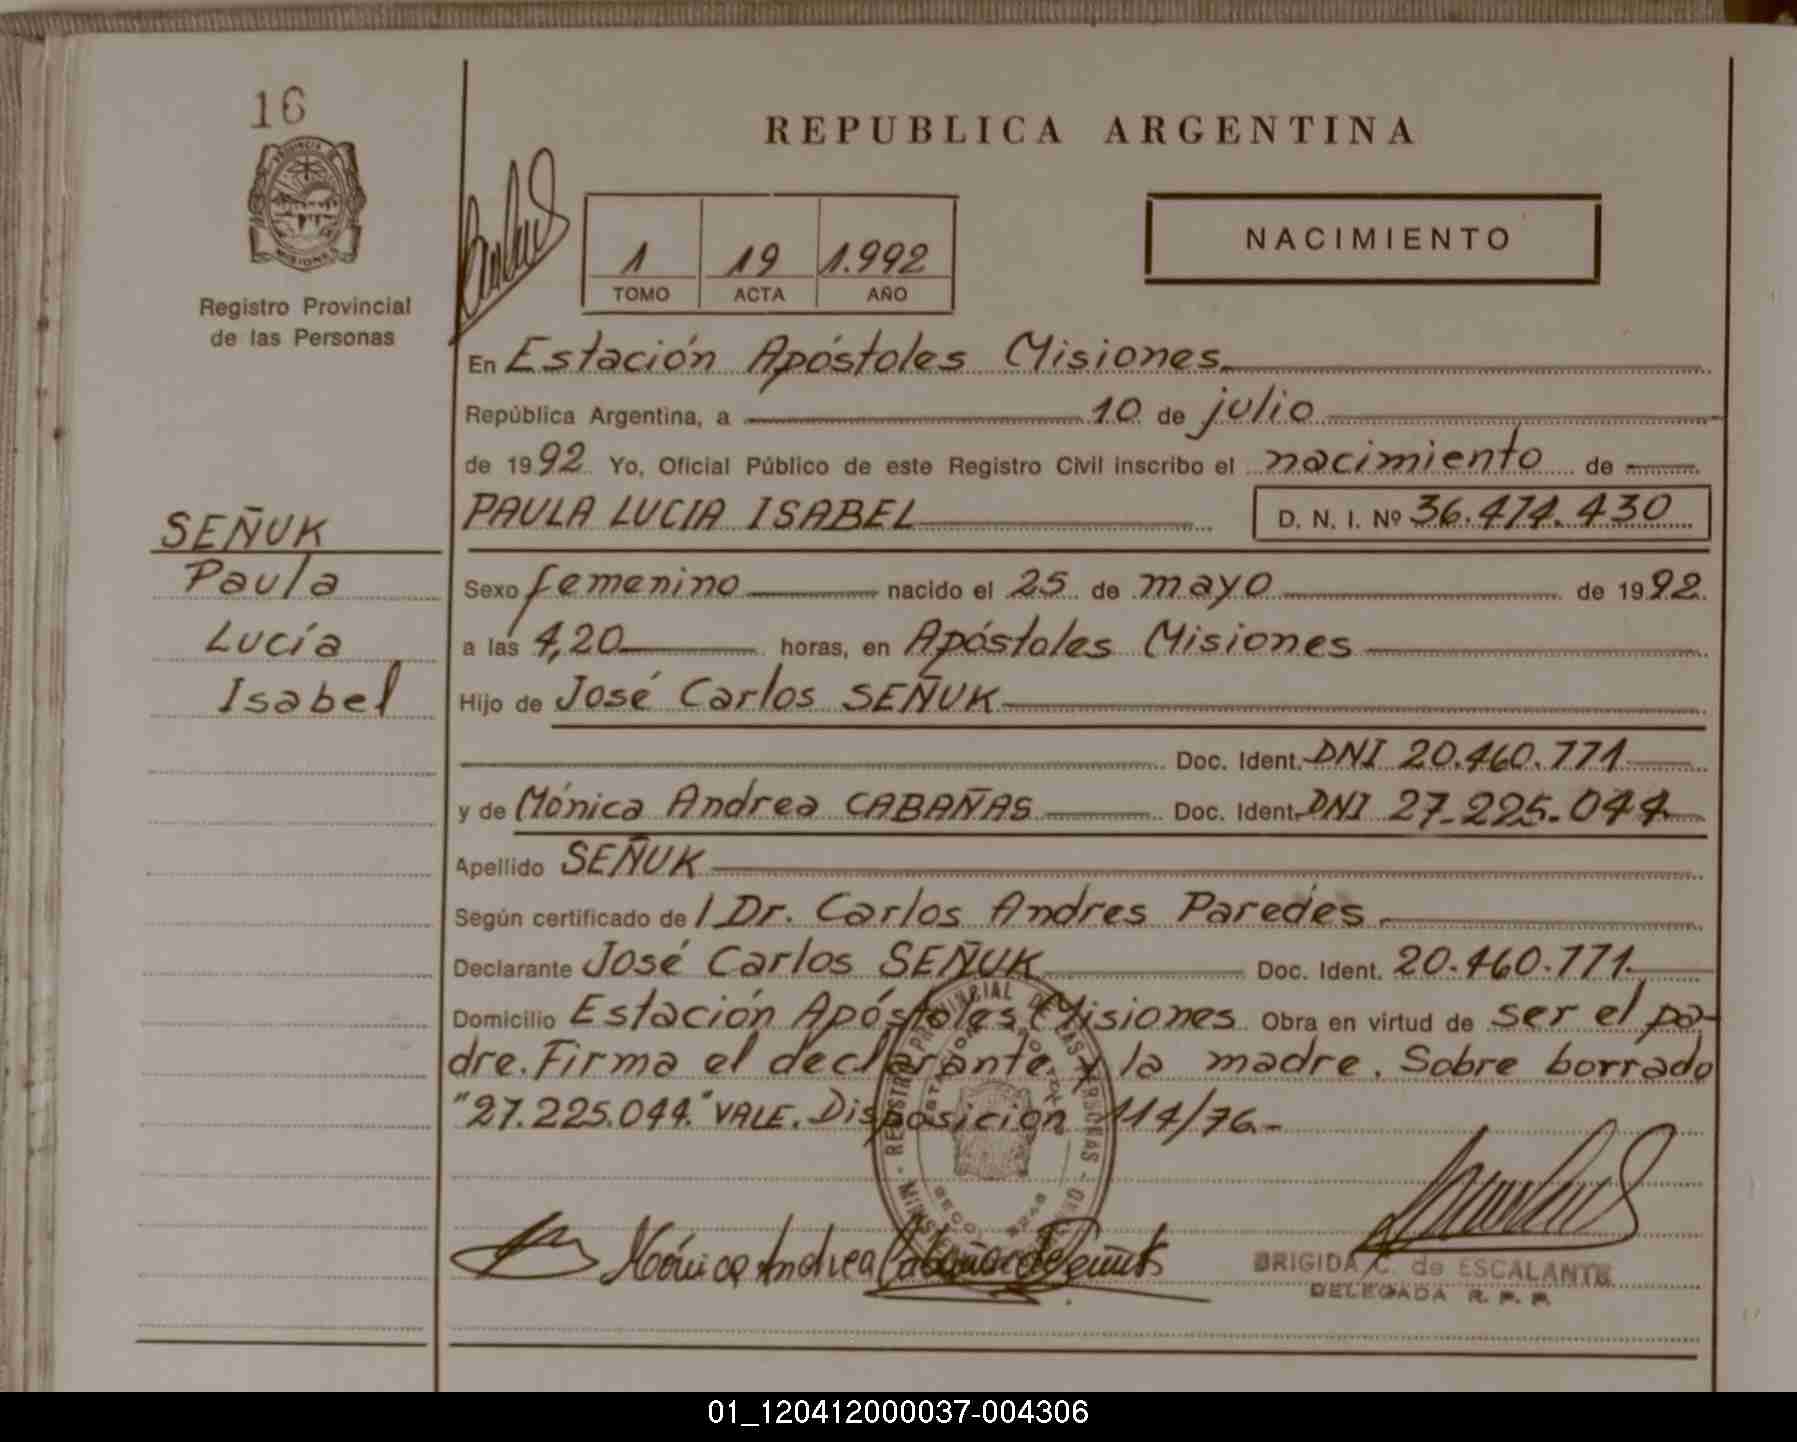 16
REPUBLICA ARGENTINA
PROVINCIA DE
MISIONES
Registro Provincial
de las Personas
1 19 1.992
TOMO ACTA AÑO
NACIMIENTO
En Estación Apóstoles Misiones
República Argentina, a 10 de julio
de 1992 Yo, Oficial Público de este Registro Civil inscribo el nacimiento de
PAULA LUCIA ISABEL D. N. I. Nº 36.474.430
SEÑUK
Paula
Lucía
Isabel
Sexo femenino nacido el 25 de mayo de 1992
a las 4,20 horas, en Apóstoles Misiones
Hijo de José Carlos SEÑUK
Doc. Ident. DNI 20.460.771
y de Mónica Andrea CABAÑAS Doc. Ident. DNI 27.225.044
Apellido SEÑUK
Según certificado de / Dr. Carlos Andres Paredes
Declarante José Carlos SEÑUK Doc. Ident. 20.460.771
Domicilio Estación Apóstoles Misiones Obra en virtud de ser el pa-
dre. Firma el declarante y la madre. Sobre borrado
"27.225.044" VALE. Disposición 114/76.-
REGISTRO PROVINCIAL DE LAS PERSONAS
Mónica Andrea Cabañas de Señuk
BRIGIDA C. de ESCALANTE
DELEGADA R. P. P.
01_120412000037-004306